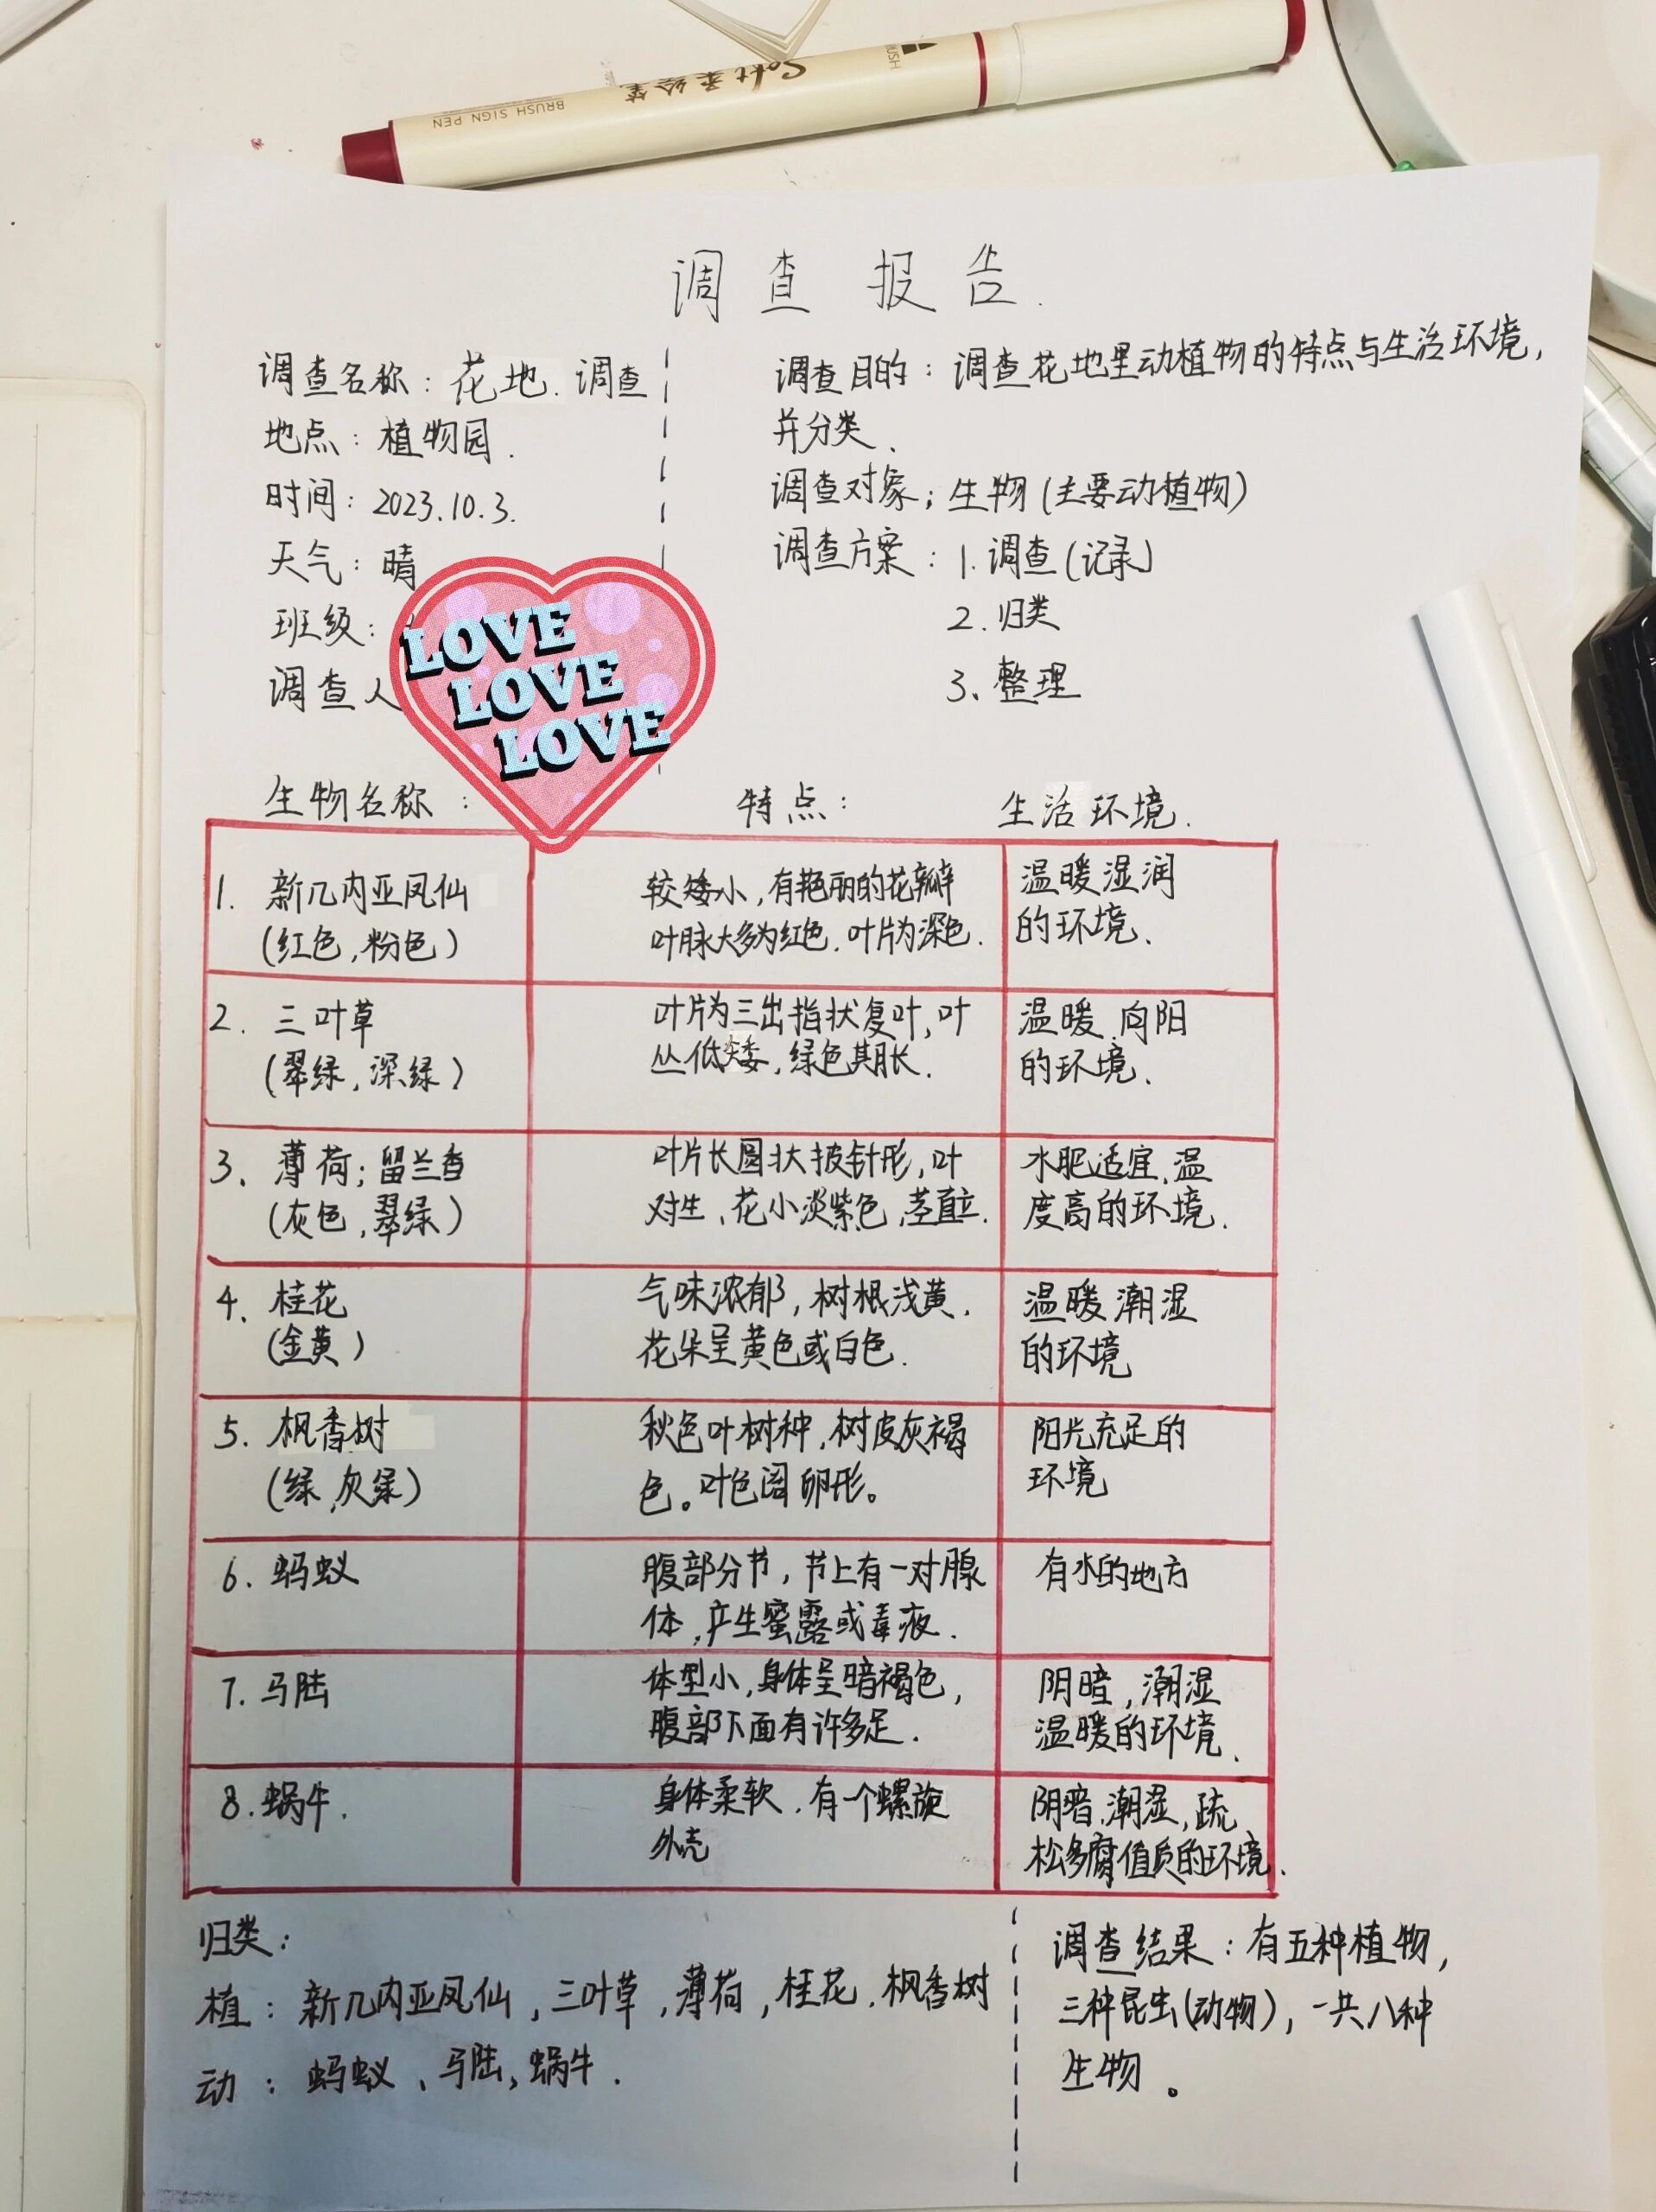 Soft 柔绘笔
BRUSH SIGN PEN
调查报告.
调查名称：花地.调查
地点：植物园.
时间：2023.10.3.
天气：晴
班级：
调查人
LOVE
LOVE
LOVE
调查目的：调查花地里动植物的特点与生活环境,
并分类、
调查对象；生物(主要动植物)
调查方案：1.调查(记录)
2.归类
3、整理
生物名称：
特点：
生活环境.
1. 新几内亚凤仙
(红色,粉色)
较矮小,有艳丽的花瓣
叶脉大多为红色.叶片为深色.
温暖湿润
的环境、
2. 三叶草
(翠绿,深绿)
叶片为三出指状复叶,叶
丛低矮,绿色期长.
温暖.向阳
的环境、
3、薄荷；留兰香
(灰色,翠绿)
叶片长圆状披针形,叶
对生、花小淡紫色,茎直立.
水肥适宜、温
度高的环境.
4. 桂花
(金黄)
气味浓郁,树根浅黄.
花朵呈黄色或白色.
温暖潮湿
的环境
5. 枫香树
(绿,灰绿)
秋色叶树种,树皮灰褐
色。叶色阔卵形。
阳光充足的
环境
6. 蚂蚁
腹部分节,节上有一对腺
体,产生蜜露或毒液.
有水的地方
7.马陆
体型小,身体呈暗褐色,
腹部下面有许多足.
阴暗,潮湿
温暖的环境、
8.蜗牛.
身体柔软.有一个螺旋
外壳
阴暗,潮湿,疏
松多腐值质的环境.
归类：
植：新几内亚凤仙,三叶草,薄荷,桂花.枫香树
动：蚂蚁、马陆,蜗牛.
调查结果：有五种植物,
三种昆虫(动物),一共八种
生物。